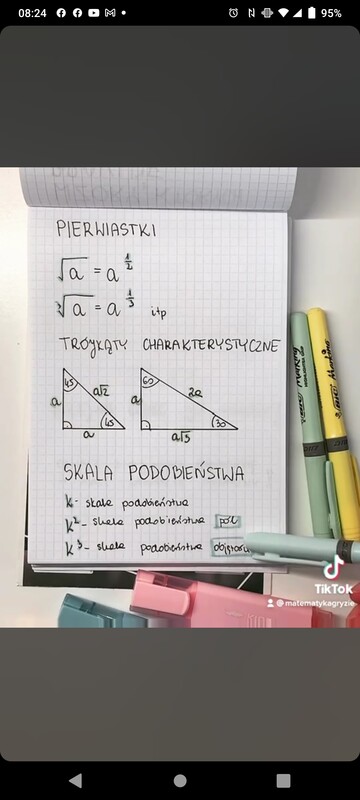 08:24
95%
PIERWIASTKI
√a = a^1/2
∛a = a^1/3 itp
TRÓJKĄTY CHARAKTERYSTYCZNE
45 60
a a√2 a 2a
45 30
a a√3
SKALA PODOBIEŃSTWA
k - skala podobieństwa
k² - skala podobieństwa pól
k³ - skala podobieństwa
TikTok
@matematykagryzie